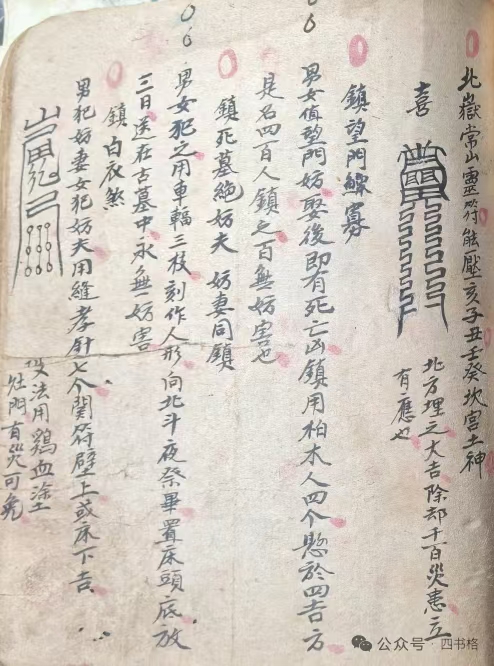 北嶽常山靈符能壓亥子丑壬癸坎宮土神
喜
北方埋之大吉除却千百災患立
有應也
鎮望門鰥寡
男女值望門妨娶後即有死亡凶鎮用柏木人四个懸於四吉方
是名四百人鎮之百無妨害也
鎮死墓絕妨夫 妨妻同鎮
男女犯之用車輻三枝刻作人形向北斗夜祭畢置床頭底放
三日送在古墓中永無一妨害
鎮白衣煞
男犯妨妻女犯妨夫用縫孝針七个閞符壁上或床下吉
法用鷄血塗
灶門有災可免
公众号·四书格